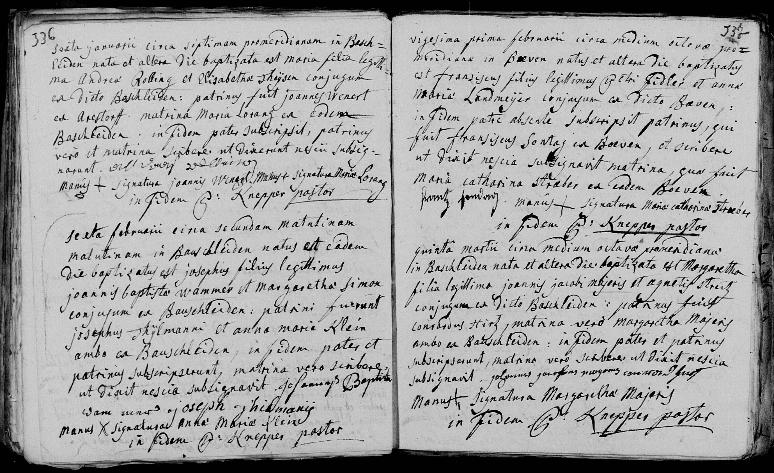 336
sexta januarii circa septimam promeridianam in Basch=
leiden nata et altera die baptizata est maria filia legitti=
ma Andreæ Rolling et Elisabethæ theisen conjugum
ex dicto Baschleiden: patrinus fuit joannes Wenert
ex Arestorff matrina Maria Lorang ex eodem
Baschleiden, in fidem pater subscripsit, patrinus
vero et matrina scribere ut dixerunt nescii subsig=
narunt.
manus + signatura joannis Wenert, manus + signatura Mariæ Lorang
in fidem P: Knepper pastor
sexta februarii circa secundam matutinam
matutinam in Bauschleiden natus est eadem
die baptizatus est josephus filius legittimus
joannis baptistæ wammer et margarethæ simon
conjugum ex Bauschleiden: patrini fuerunt
josephus thilmanni et anna maria Klein
ambo ex Bauschleiden, in fidem pater et
patrinus subscripserunt, matrina vero scribere
ut dixit nescia subsignavit joannes Baptista
joseph thielmanij
manus X signatura Anna Maria Klein
in fidem P: Knepper pastor
vigesima prima februarii circa medium octavæ pro=
meridiana in Boeven natus et altera die baptizatus
est franciscus filius legittimus Petri fidler et anna
Maria Landmeijer conjugum ex dicto Boeven,:
in fidem patre absente subscripsit patrinus, qui
fuit franciscus sontag ex Boeven, et scribere
ut dixit nescia subsignavit matrina, quæ fuit
Maria catharina straber ex eadem Boeven
manus + signatura Mariæ catharinæ straber
in fidem P: Knepper pastor
quinta martii circa medium octavæ promeridianæ
in Baschleiden nata et altera die baptizata est Margaretha
filia legittima joannis jacobi majeris et agnetis streit
conjugum ex dicto Baschleiden: patrinus fuit
matrina vero margaretha Majeris
ambo ex Bauschleiden: in fidem pater et patrinus
subscripserunt, matrina vero scribere ut dixit nescia
subsignavit.
manus + signatura Margaretha Majeris
in fidem P: Knepper pastor